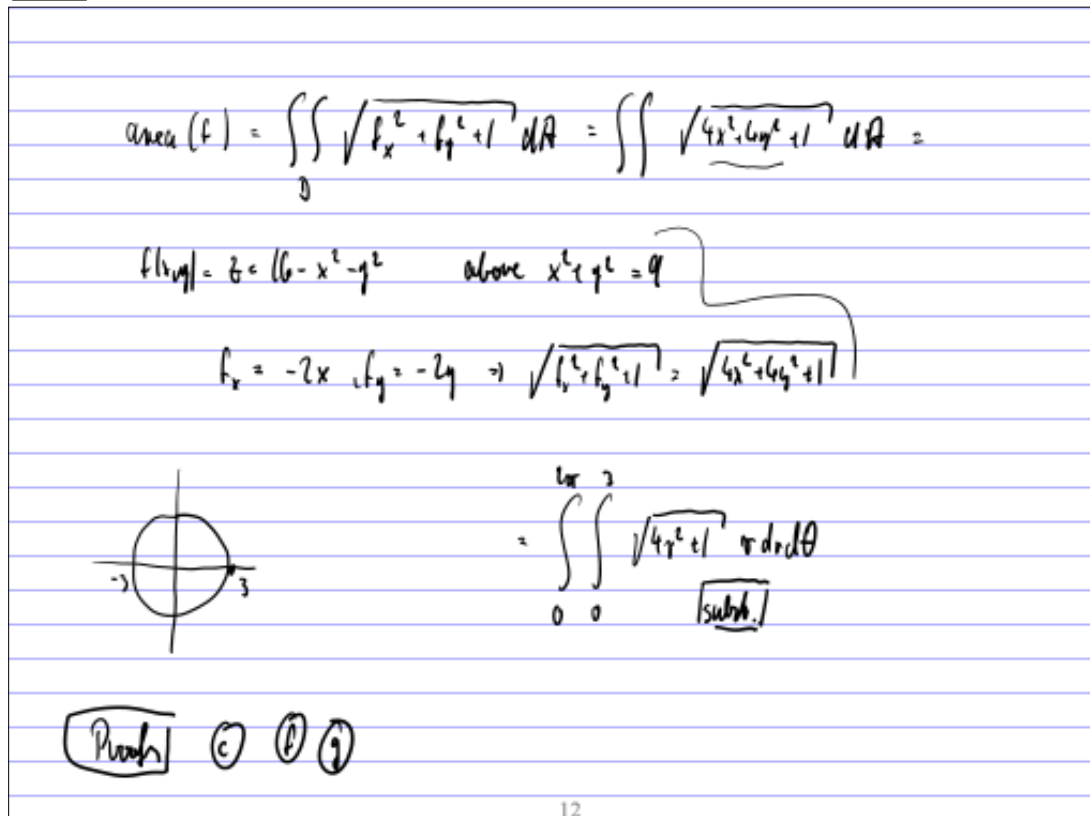 area (f) = ∫∫_D √(f_x² + f_y² + 1) dA = ∫∫ √(4x² + 4y² + 1) dA =
f(x,y) = z = 16 - x² - y² above x² + y² = 9
f_x = -2x , f_y = -2y ⇒ √(f_x² + f_y² + 1) = √(4x² + 4y² + 1)
-3 3
= ∫_0^{2π} ∫_0^3 √(4r² + 1) r dr dθ
subst.
Proofs c f g
12